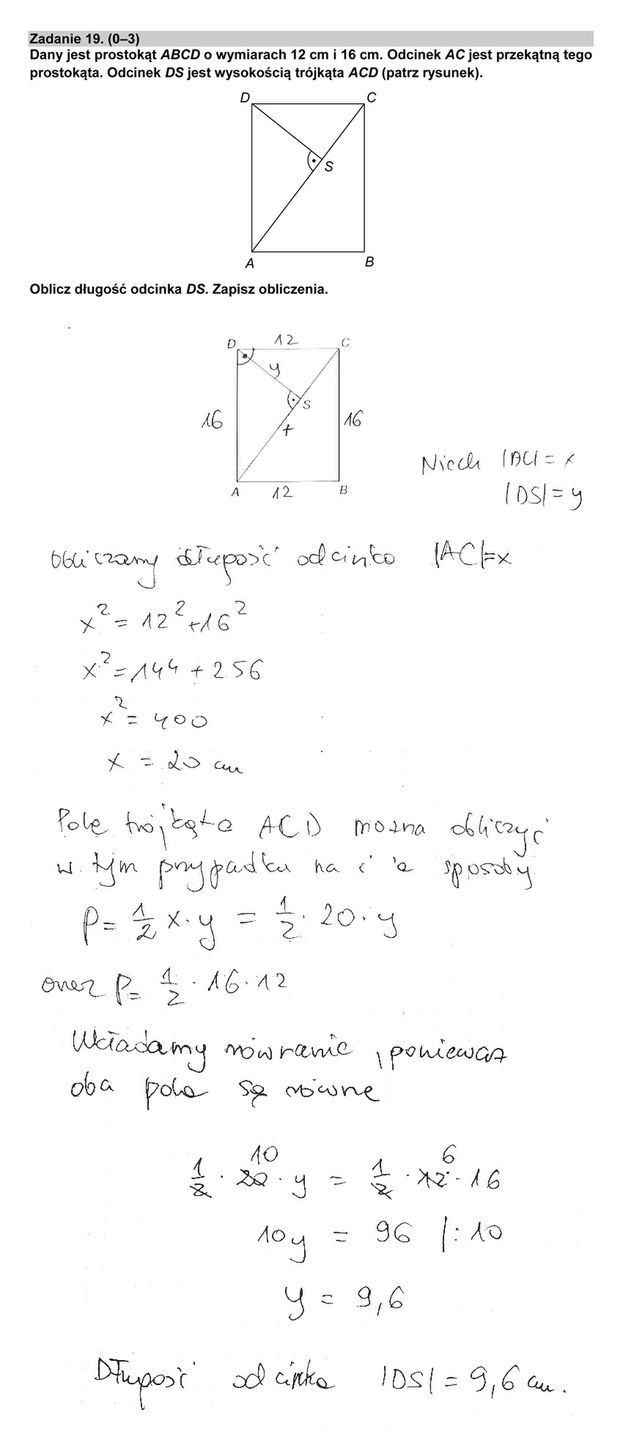 Zadanie 19. (0–3)
Dany jest prostokąt ABCD o wymiarach 12 cm i 16 cm. Odcinek AC jest przekątną tego
prostokąta. Odcinek DS jest wysokością trójkąta ACD (patrz rysunek).
D C
S
A B
Oblicz długość odcinka DS. Zapisz obliczenia.
D 12 C
y
S
16 x 16
A 12 B
Niech |AC| = x
|DS| = y
Obliczamy długość odcinka |AC|=x
x² = 12² + 16²
x² = 144 + 256
x² = 400
x = 20 cm
Pole trójkąta ACD można obliczyć
w tym przypadku na sposoby
P = 1/2 x · y = 1/2 · 20 · y
oraz P = 1/2 · 16 · 12
Układamy równanie, ponieważ
oba pola są równe
10 6
1/2 · 20 · y = 1/2 · 12 · 16
10y = 96 |: 10
y = 9,6
Długość odcinka |DS| = 9,6 cm.